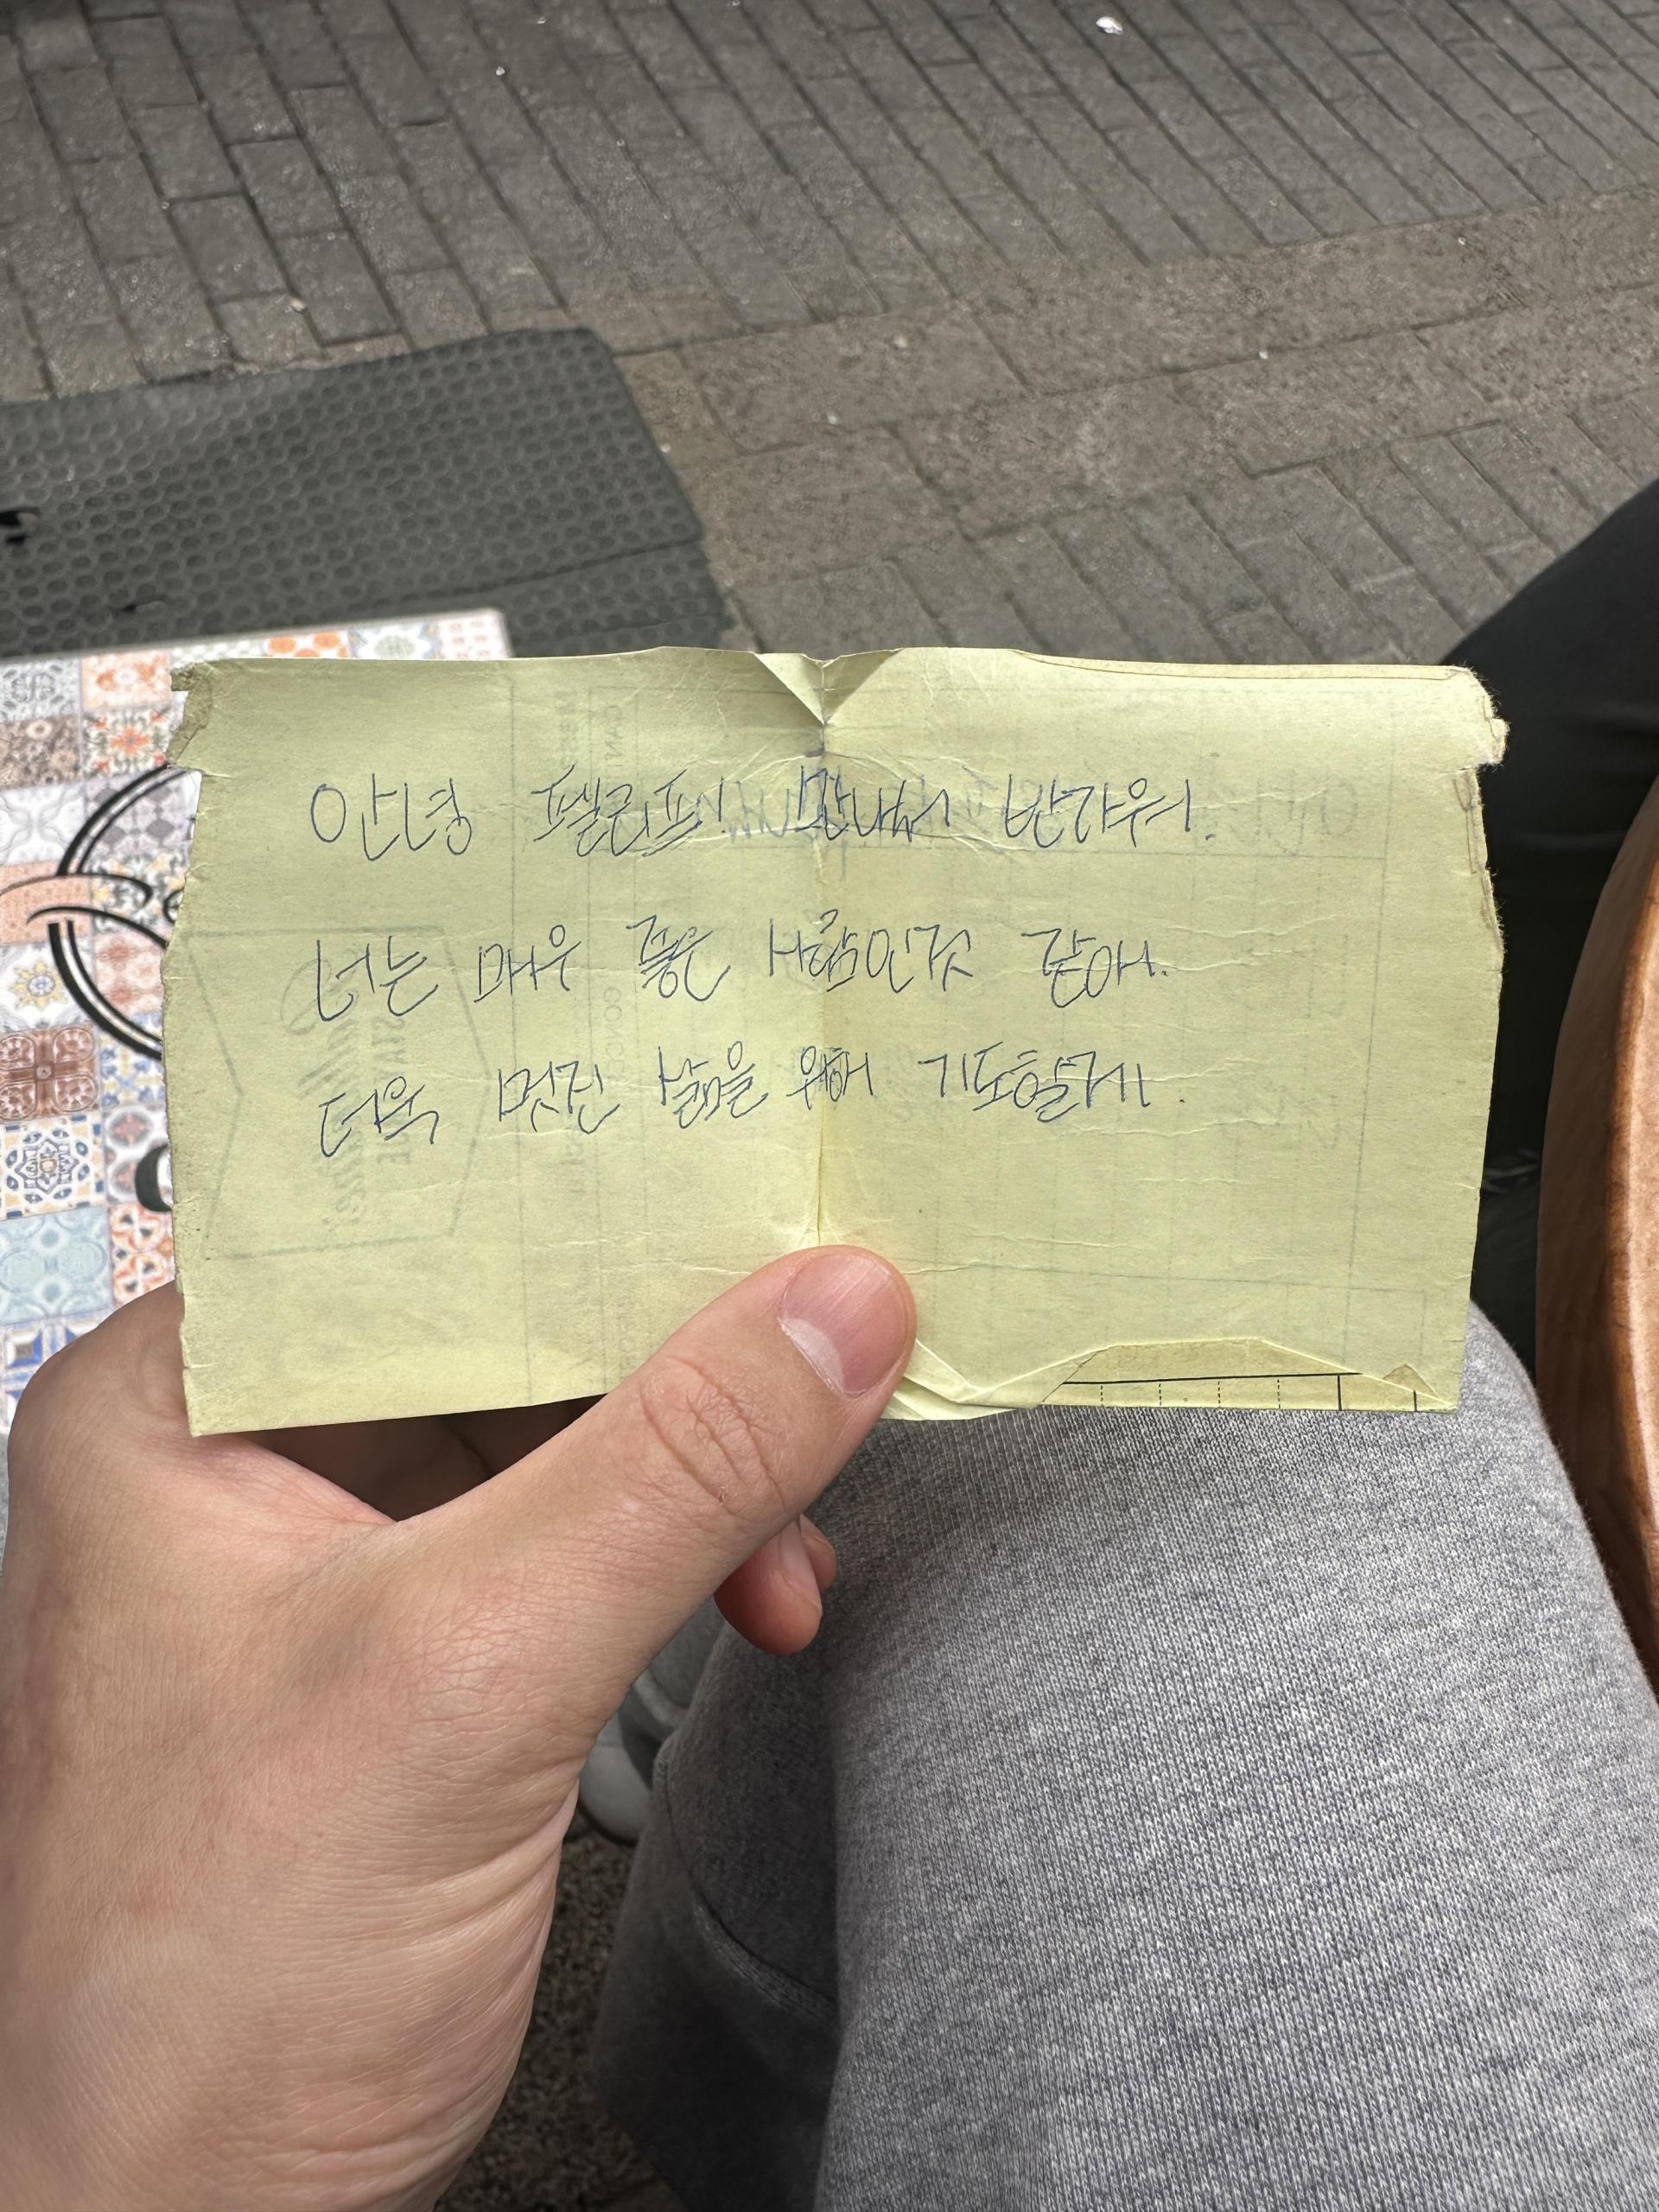 안녕 펠리프! 만나서 반가워.
너는 매우 좋은 사람인것 같애.
더욱 멋진 삶을 위해 기도할게.